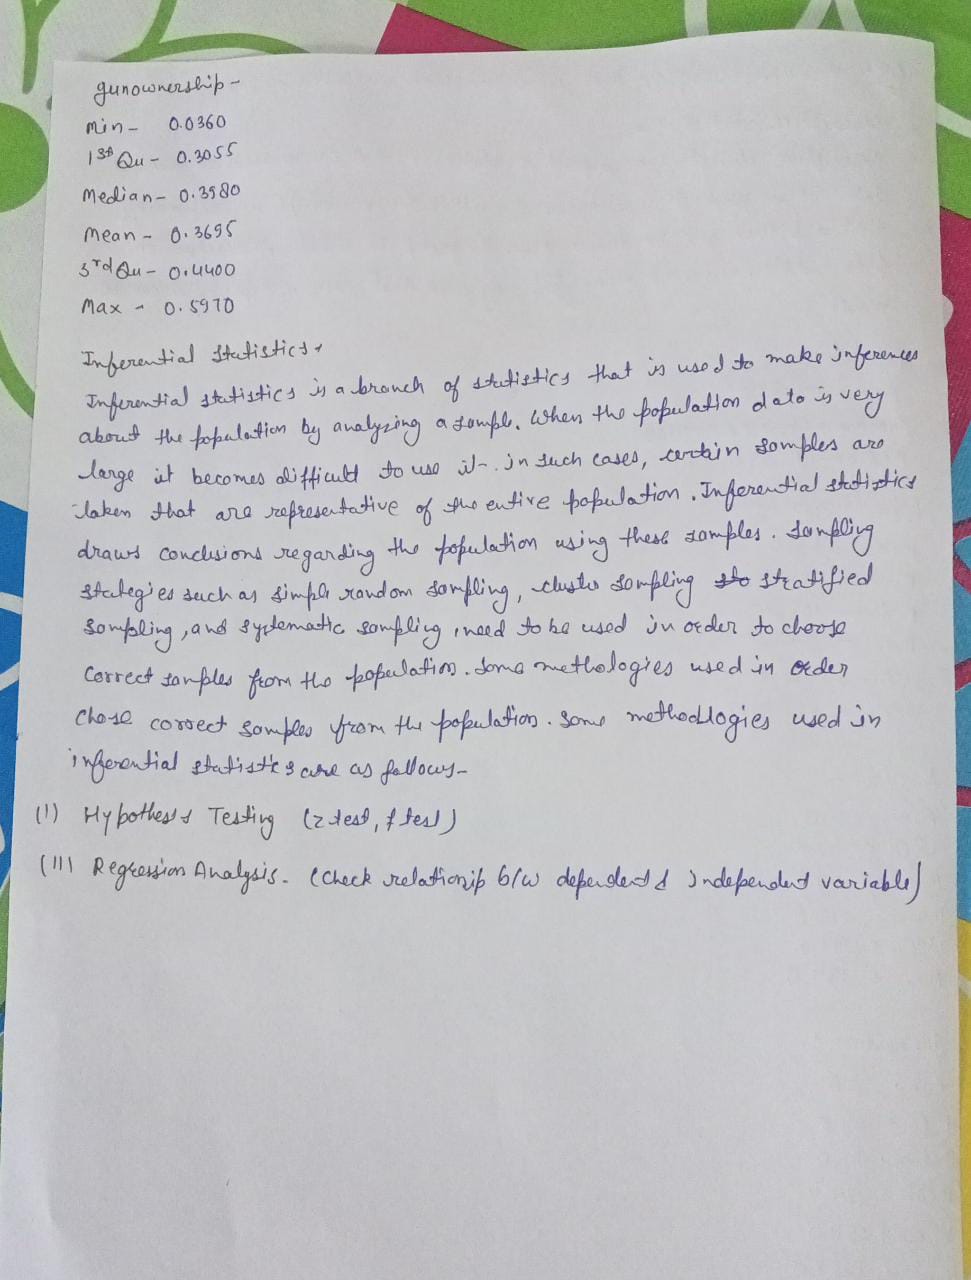 gunownership -
Min - 0.0360
1st Qu - 0.3055
Median - 0.3980
Mean - 0.3695
3rd Qu - 0.4400
Max - 0.5970
Inferential Statistics,
Inferential statistics is a branch of statistics that is used to make inferences
about the population by analyzing a sample. When the population data is very
large it becomes difficult to use it. in such cases, certain samples are
taken that are representative of the entire population. Inferential statistics
draws conclusions regarding the population using these samples. Sampling
stategies such as simple random sampling, cluster sampling sto stratified
sampling, and systematic sampling, need to be used in order to choose
correct samples from the population. Some methologies used in order
chose correct samples from the population. Some methodlogies used in
inferential statistics are as follows-
(I) Hypothesis Testing (z test, f test)
(III Regression Analysis. (check relationip b/w dependent & independent variable)